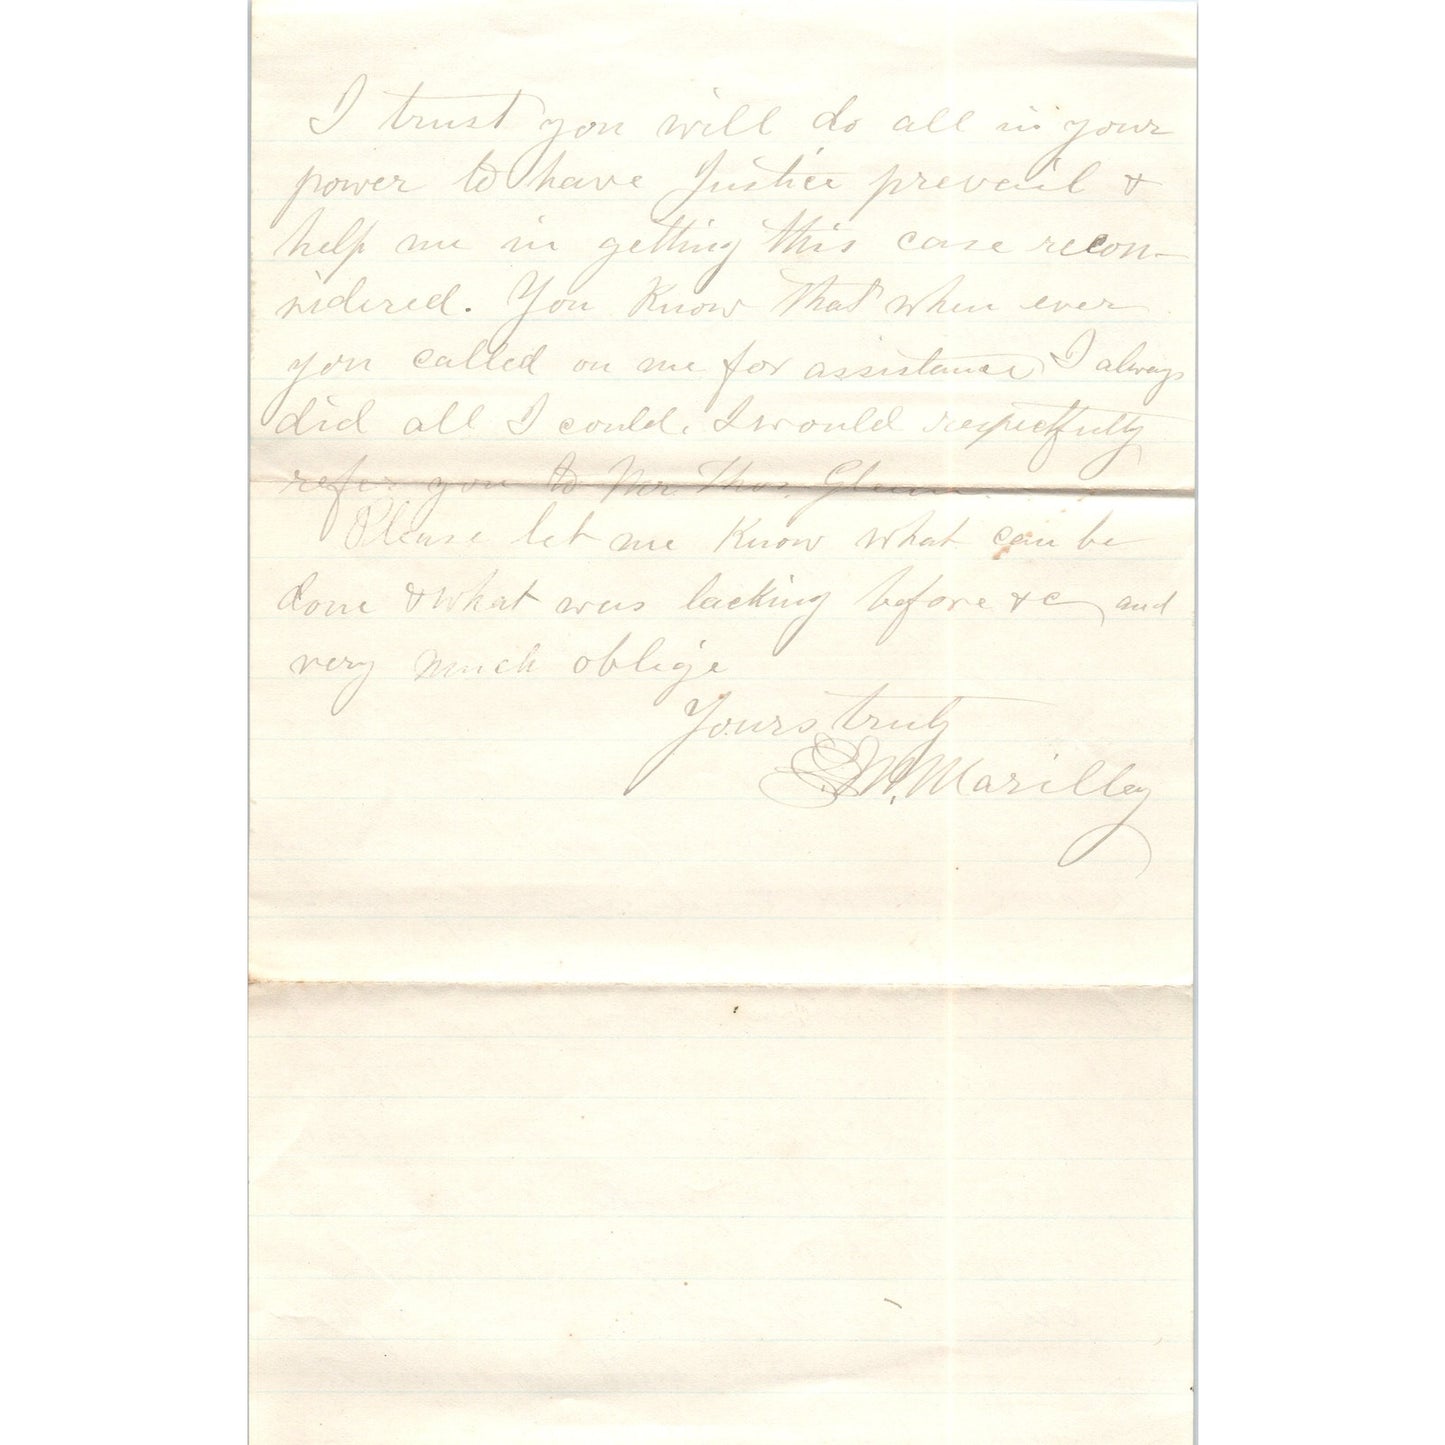 I trust you will do all in your
power to have Justice prevail &
help me in getting this case recon-
sidered. You Know that when ever
you called on me for assistance I always
did all I could. I would respectfully
refer you to Mr. Thos. Glenn.
Please let me Know what can be
done & what was lacking before &c and
very much oblige
Yours truly
W. Marilley